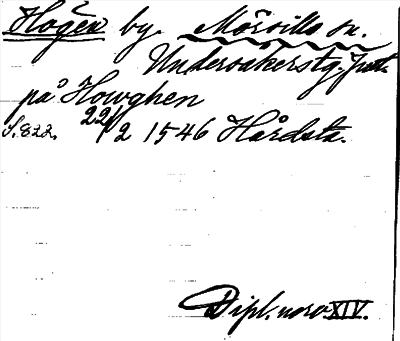 Högen by. Mörsills sn.
Undersåkerstg. Jmtl.
på Howghen
S. 822. 22/2 1546 Hårdsta.
Dipl. norv. XIV.